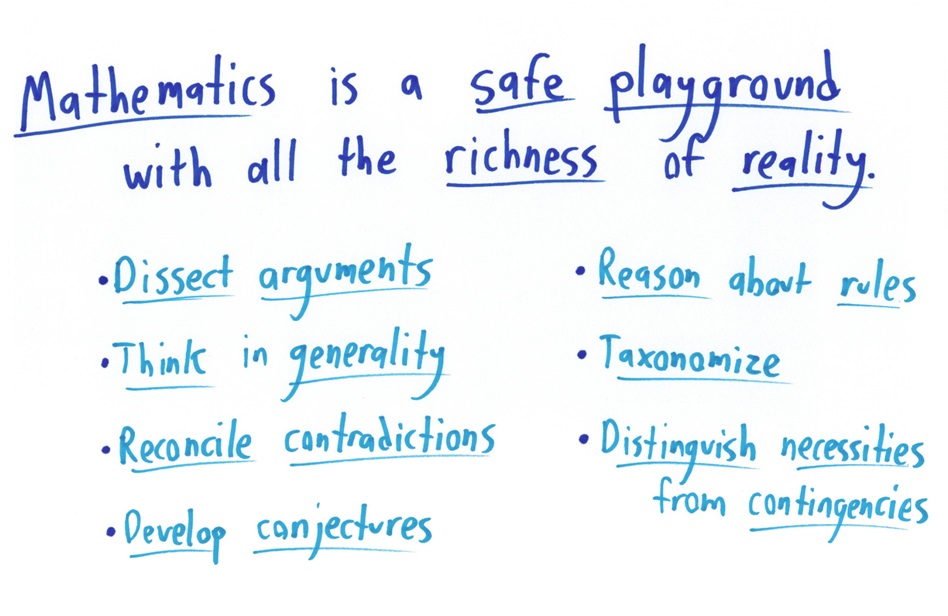 Mathematics is a safe playground
with all the richness of reality.
• Dissect arguments
• Think in generality
• Reconcile contradictions
• Develop conjectures
• Reason about rules
• Taxonomize
• Distinguish necessities
from contingencies